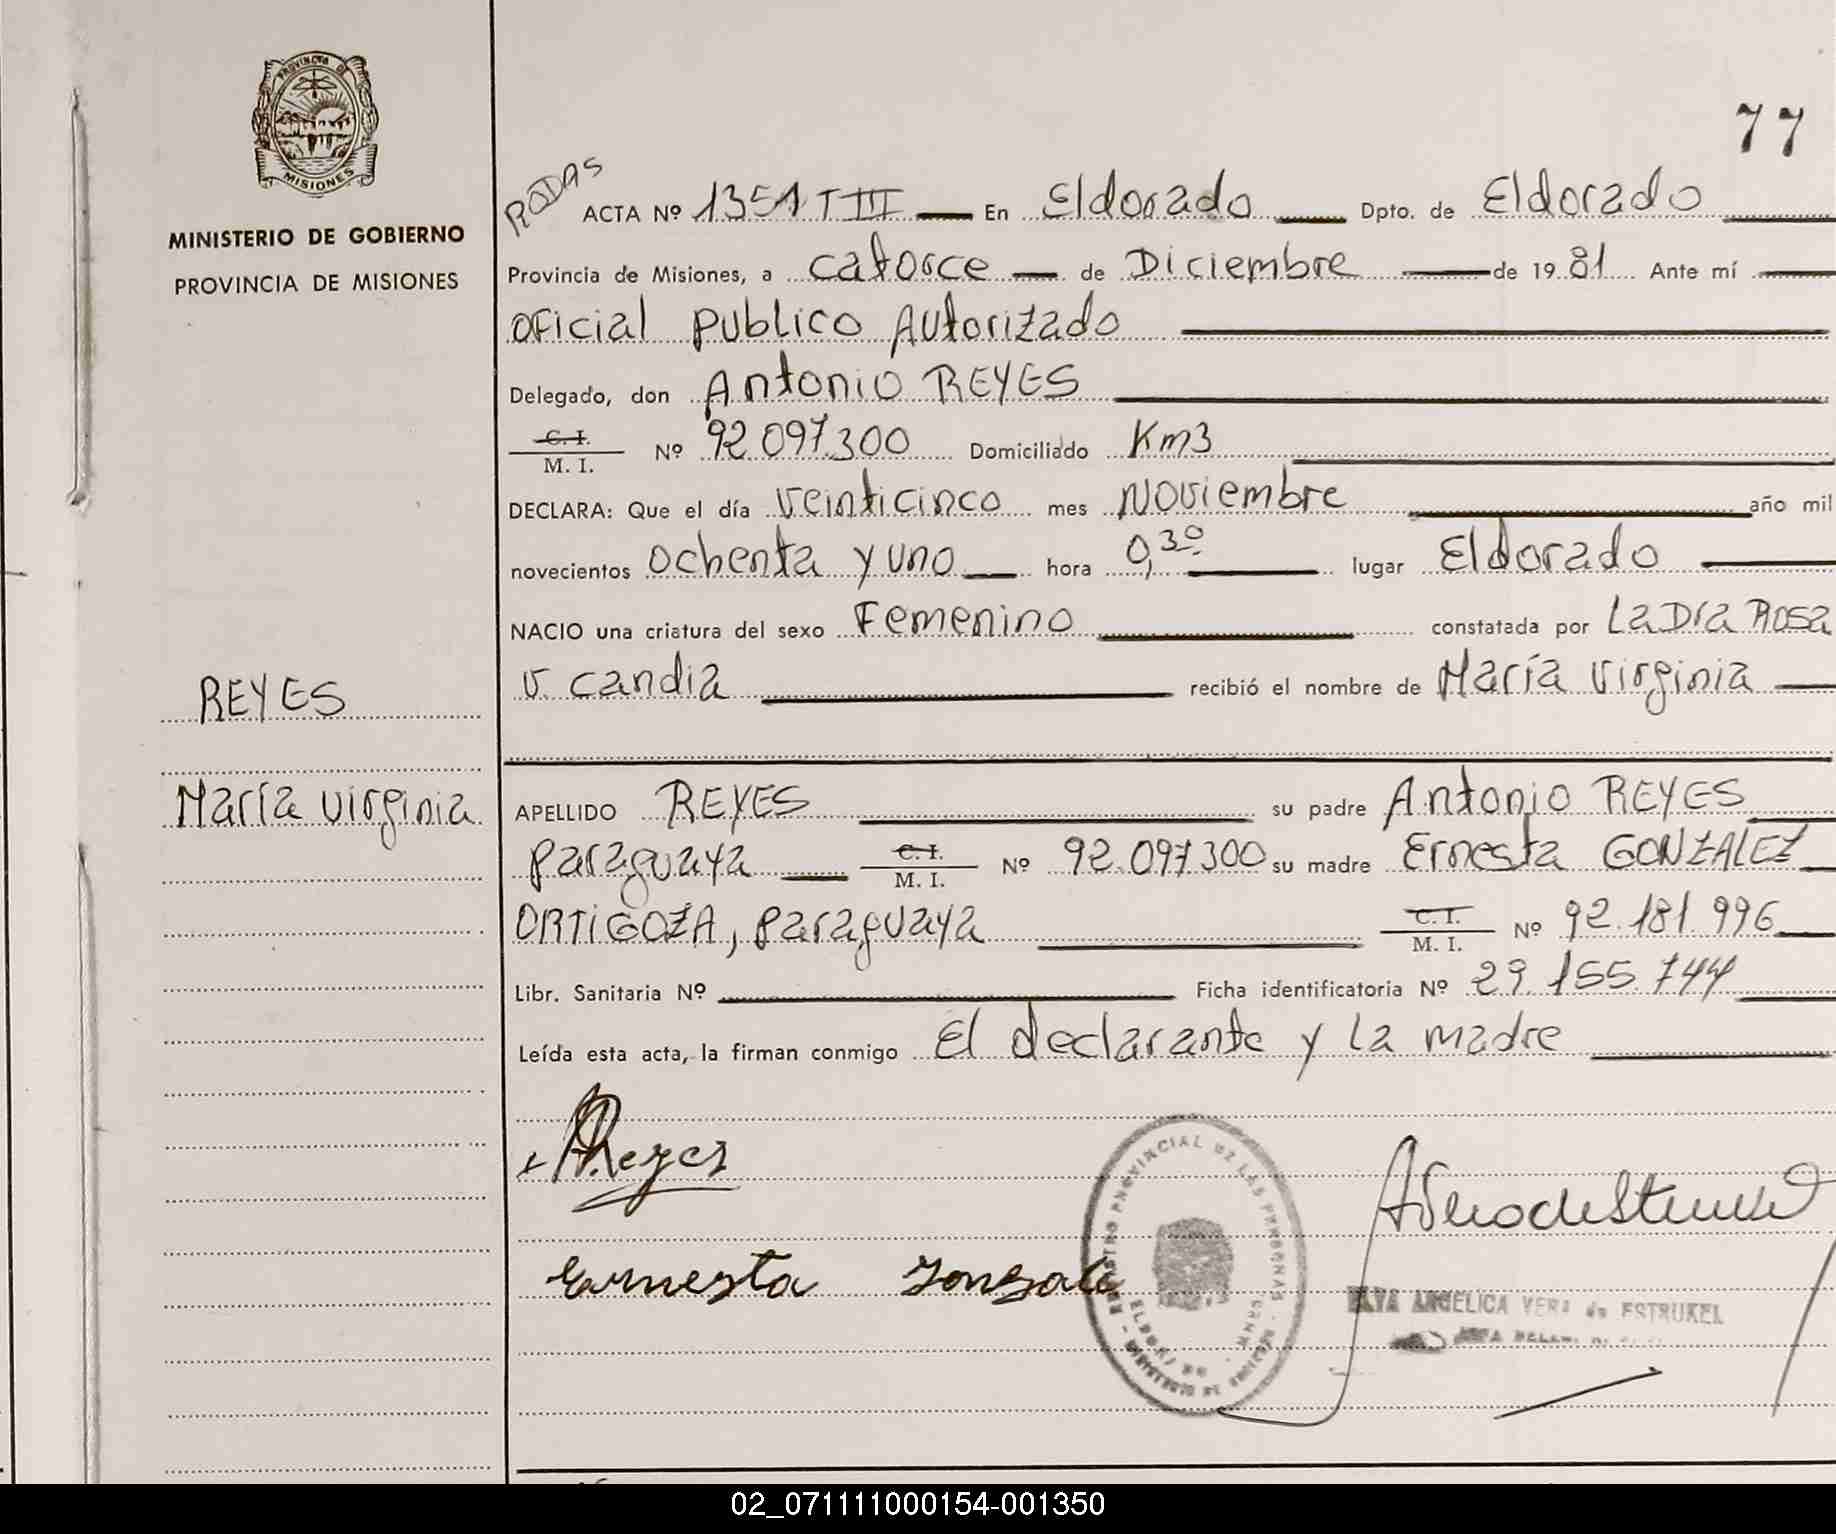 PROVINCIA DE
MISIONES
MINISTERIO DE GOBIERNO
PROVINCIA DE MISIONES
REYES
María Virginia
77
RODAS
ACTA Nº 1351 T III En Eldorado Dpto. de Eldorado
Provincia de Misiones, a catorce de Diciembre de 1981 Ante mí
Oficial Publico Autorizado
Delegado, don Antonio REYES
C. I.
M. I. Nº 92.097.300 Domiciliado Km3
DECLARA: Que el día veinticinco mes Noviembre año mil
novecientos ochenta y uno hora 0,30 lugar Eldorado
NACIO una criatura del sexo Femenino constatada por La Dra Rosa
v. candia recibió el nombre de María Virginia
APELLIDO REYES su padre Antonio REYES
paraguaya C. I. M. I. Nº 92.097.300 su madre Ernesta GONZALEZ
ORTIGOZA, paraguaya C. I. M. I. Nº 92.181.996
Libr. Sanitaria Nº Ficha identificatoria Nº 29.155.744
Leída esta acta, la firman conmigo El declarante y la madre
A Reyes
Ernesta Gonzale
REGISTRO PROVINCIAL DE LAS PERSONAS
ANGELICA VERA de ESTRUKEL
02_071111000154-001350